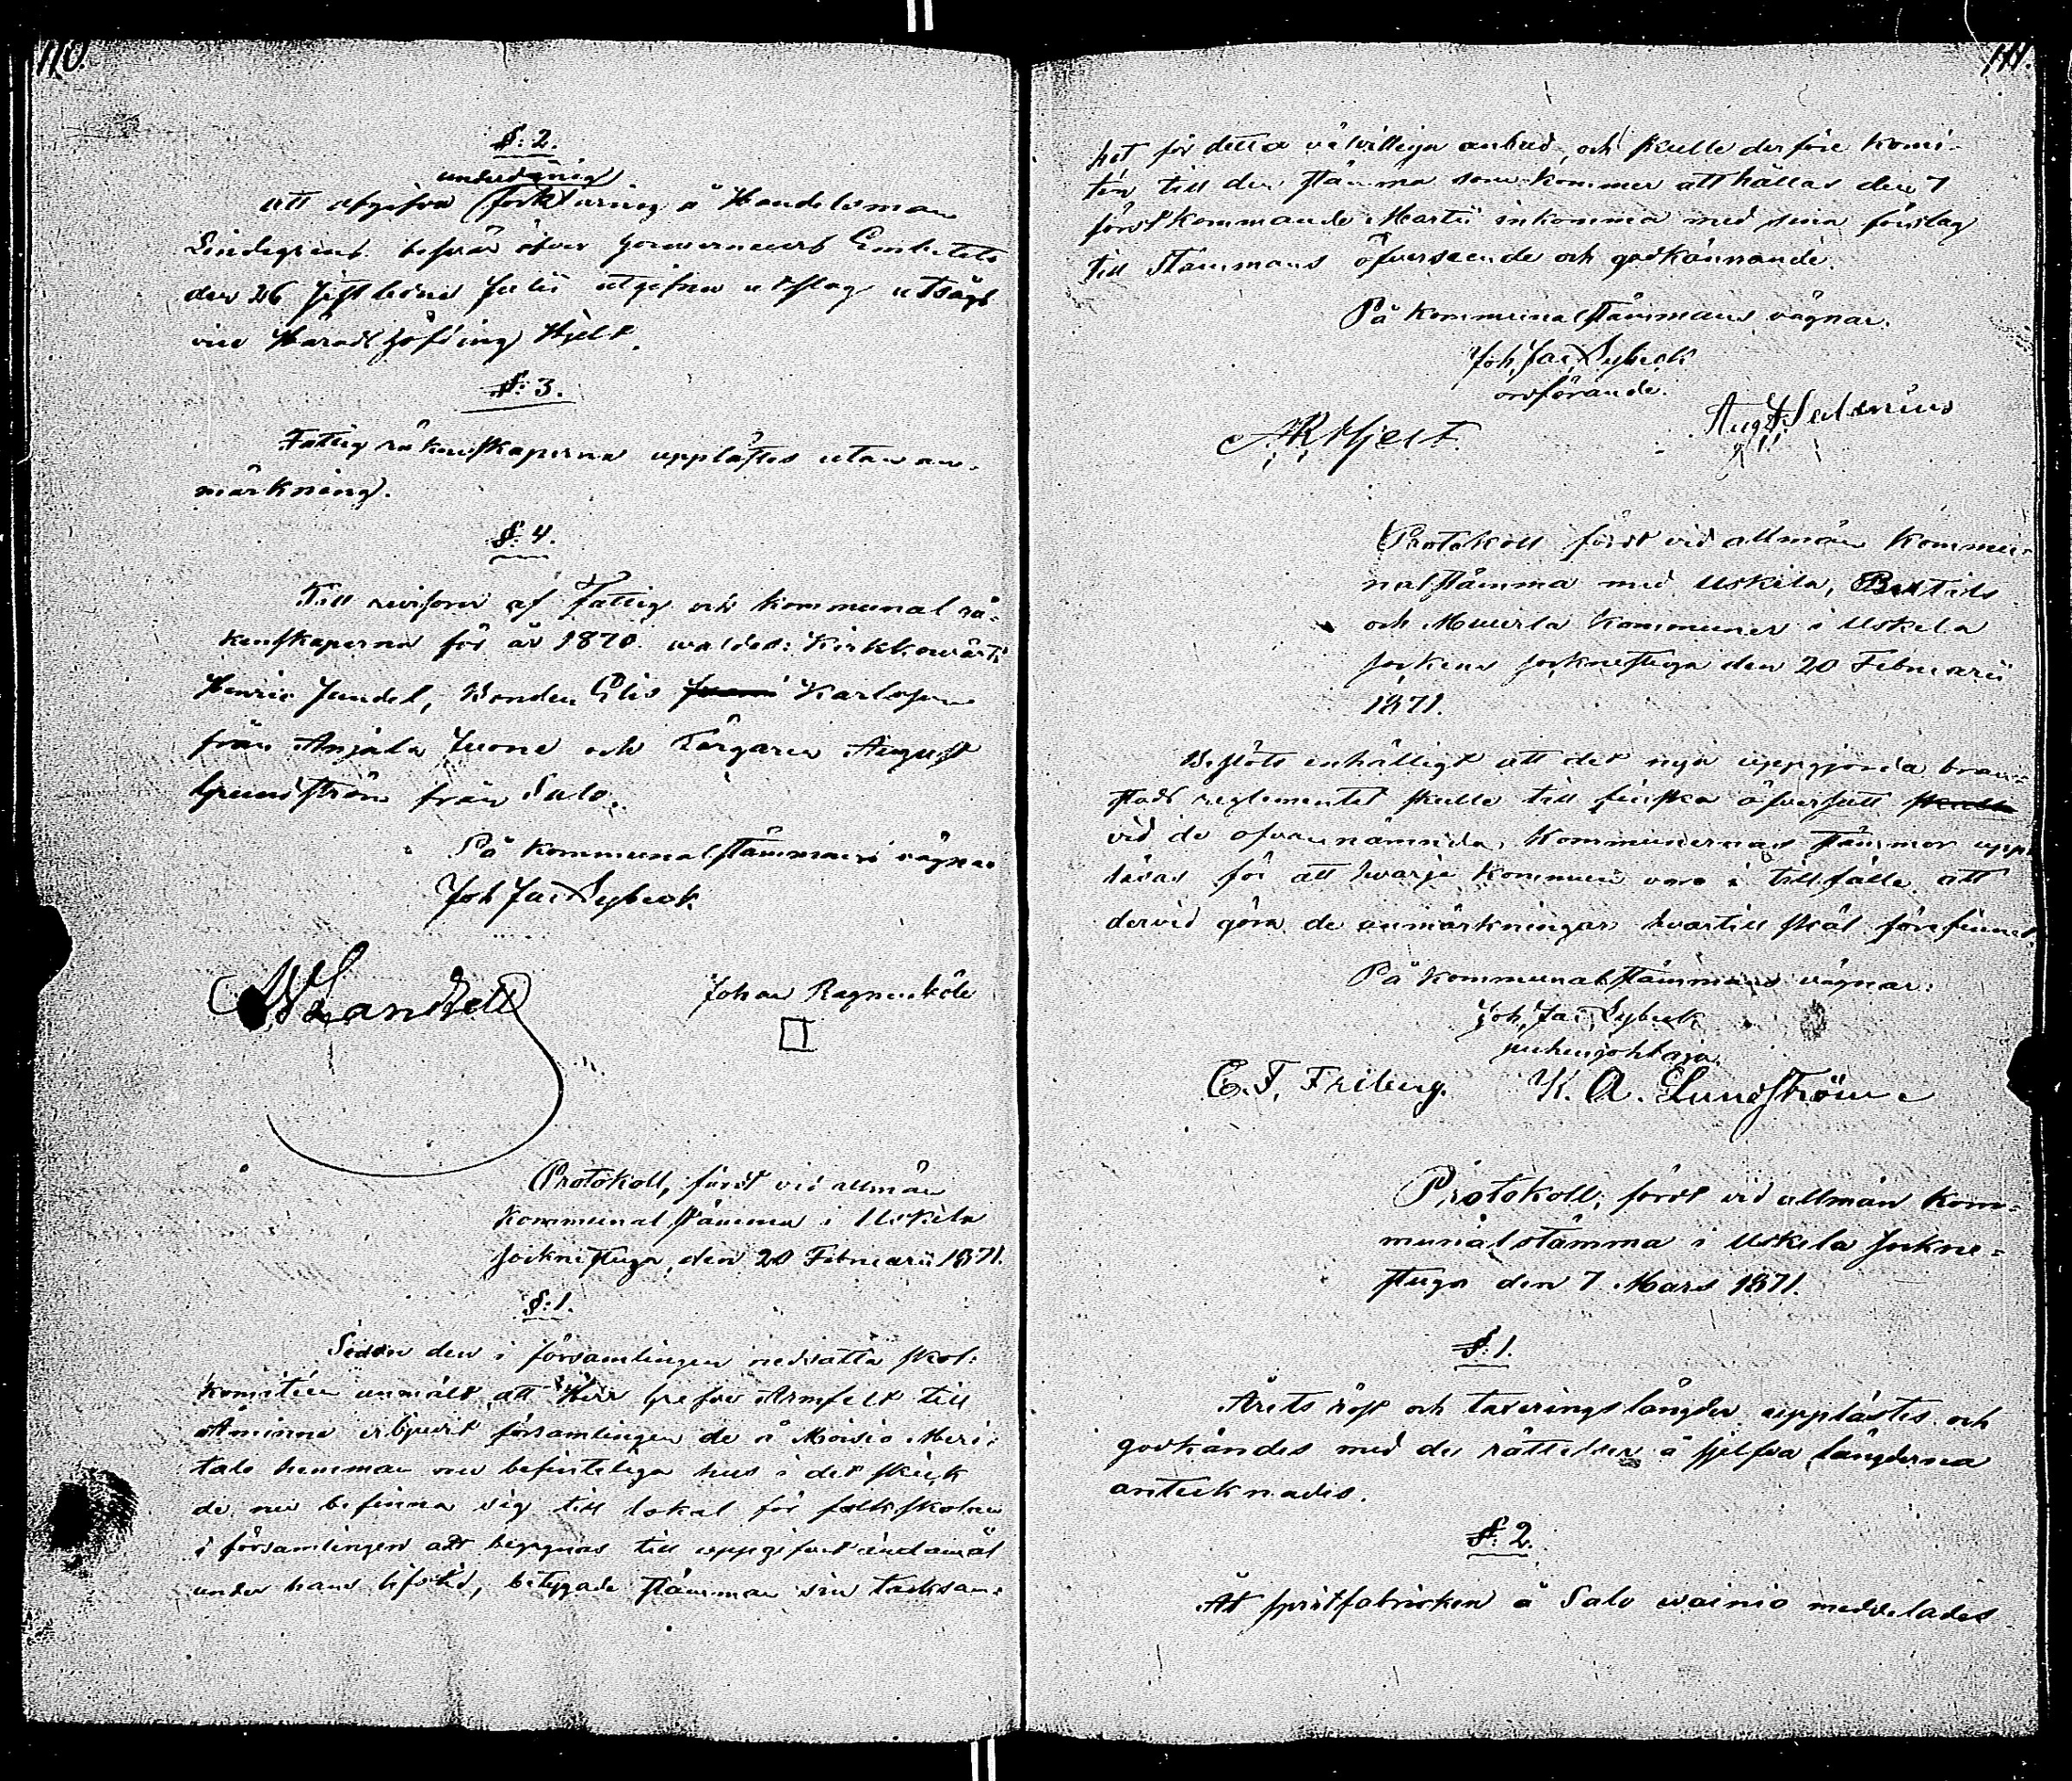 110.
§: 2.
underdånig
att afgifva förklaring å Handelsman
Lindegrens besvär öfver Gouverneurs Embetets
den 26 sistledne Julii utgifna utslag utsågs
vice Häradshöfding Hjelt.
§: 3.
Fattig räkenskaperna upplästes utan an-
märkning.
§: 4.
Till revisorer af Fattig och kommunal rä-
kenskaperna för år 1870 valdes: Kirkkowärti
Henric Jundel, Bonden Elis Karlsson
från Anjala Juone och Färgaren August
Grundström från Salo.
På kommunalstämmans vägnar
Joh Jac Lybeck.
Johan Ragnusköle
Protokoll, fördt vid allmän
kommunalstämma i Uskela
sockenstuga, den 20 Februarii 1871.
§: 1.
Sedan den i församlingen nedsatta skol-
komitéen anmält, att Herr Grefve Armfelt till
Åminne erbjudit församlingen de å Moisio Meri-
talo hemman nu befinteliga hus i det skick
de nu befinna sig till lokal för folkskolan
i församlingen att begagnas till uppgifvet ändamål
under hans lifstid, betygade stämman sin tacksam-
111.
het för detta välvilliga anbud, och skulle derföre komi-
tén till den stämma som kommer att hållas den 7
förstkommande Martii inkomma med sina förslag
till Stämmans öfverseende och godkännande.
På Kommunalstämmans vägnar.
Joh. Jac. Lybeck
ordförande.
Aug. F. Selenius
A R Hjelt
Protokoll fördt vid allmän Kommu-
nalstämma med Uskela, Bertils
och Muurla Kommuner i Uskela
sockens sockenstuga den 20 Februarii
1871.
Beslöts enhälligt att det nya uppgjorda brand-
stods reglementet skulle till finska öfversatt skulle
vid de ofvannämnda Kommunernas stämmor upp-
läsas för att hvarje kommun vore i tillfälle att
dervid göra de anmärkningar hvartill skäl förefinnes
På Kommunalstämmans vägnar:
Joh. Jac. Lybeck
puhenjohtaja.
C. F. Friberg. K. A. Lundström
Protokoll, fördt vid allmän kom-
munalstämma i Uskela sockne-
stuga den 7 Mars 1871.
§: 1.
Årets röst och taxeringslängder upplästes och
godkändes med de rättelser å sjelfva längderna
antecknades.
§: 2.
Åt spritfabriken å Salo wainio meddelades